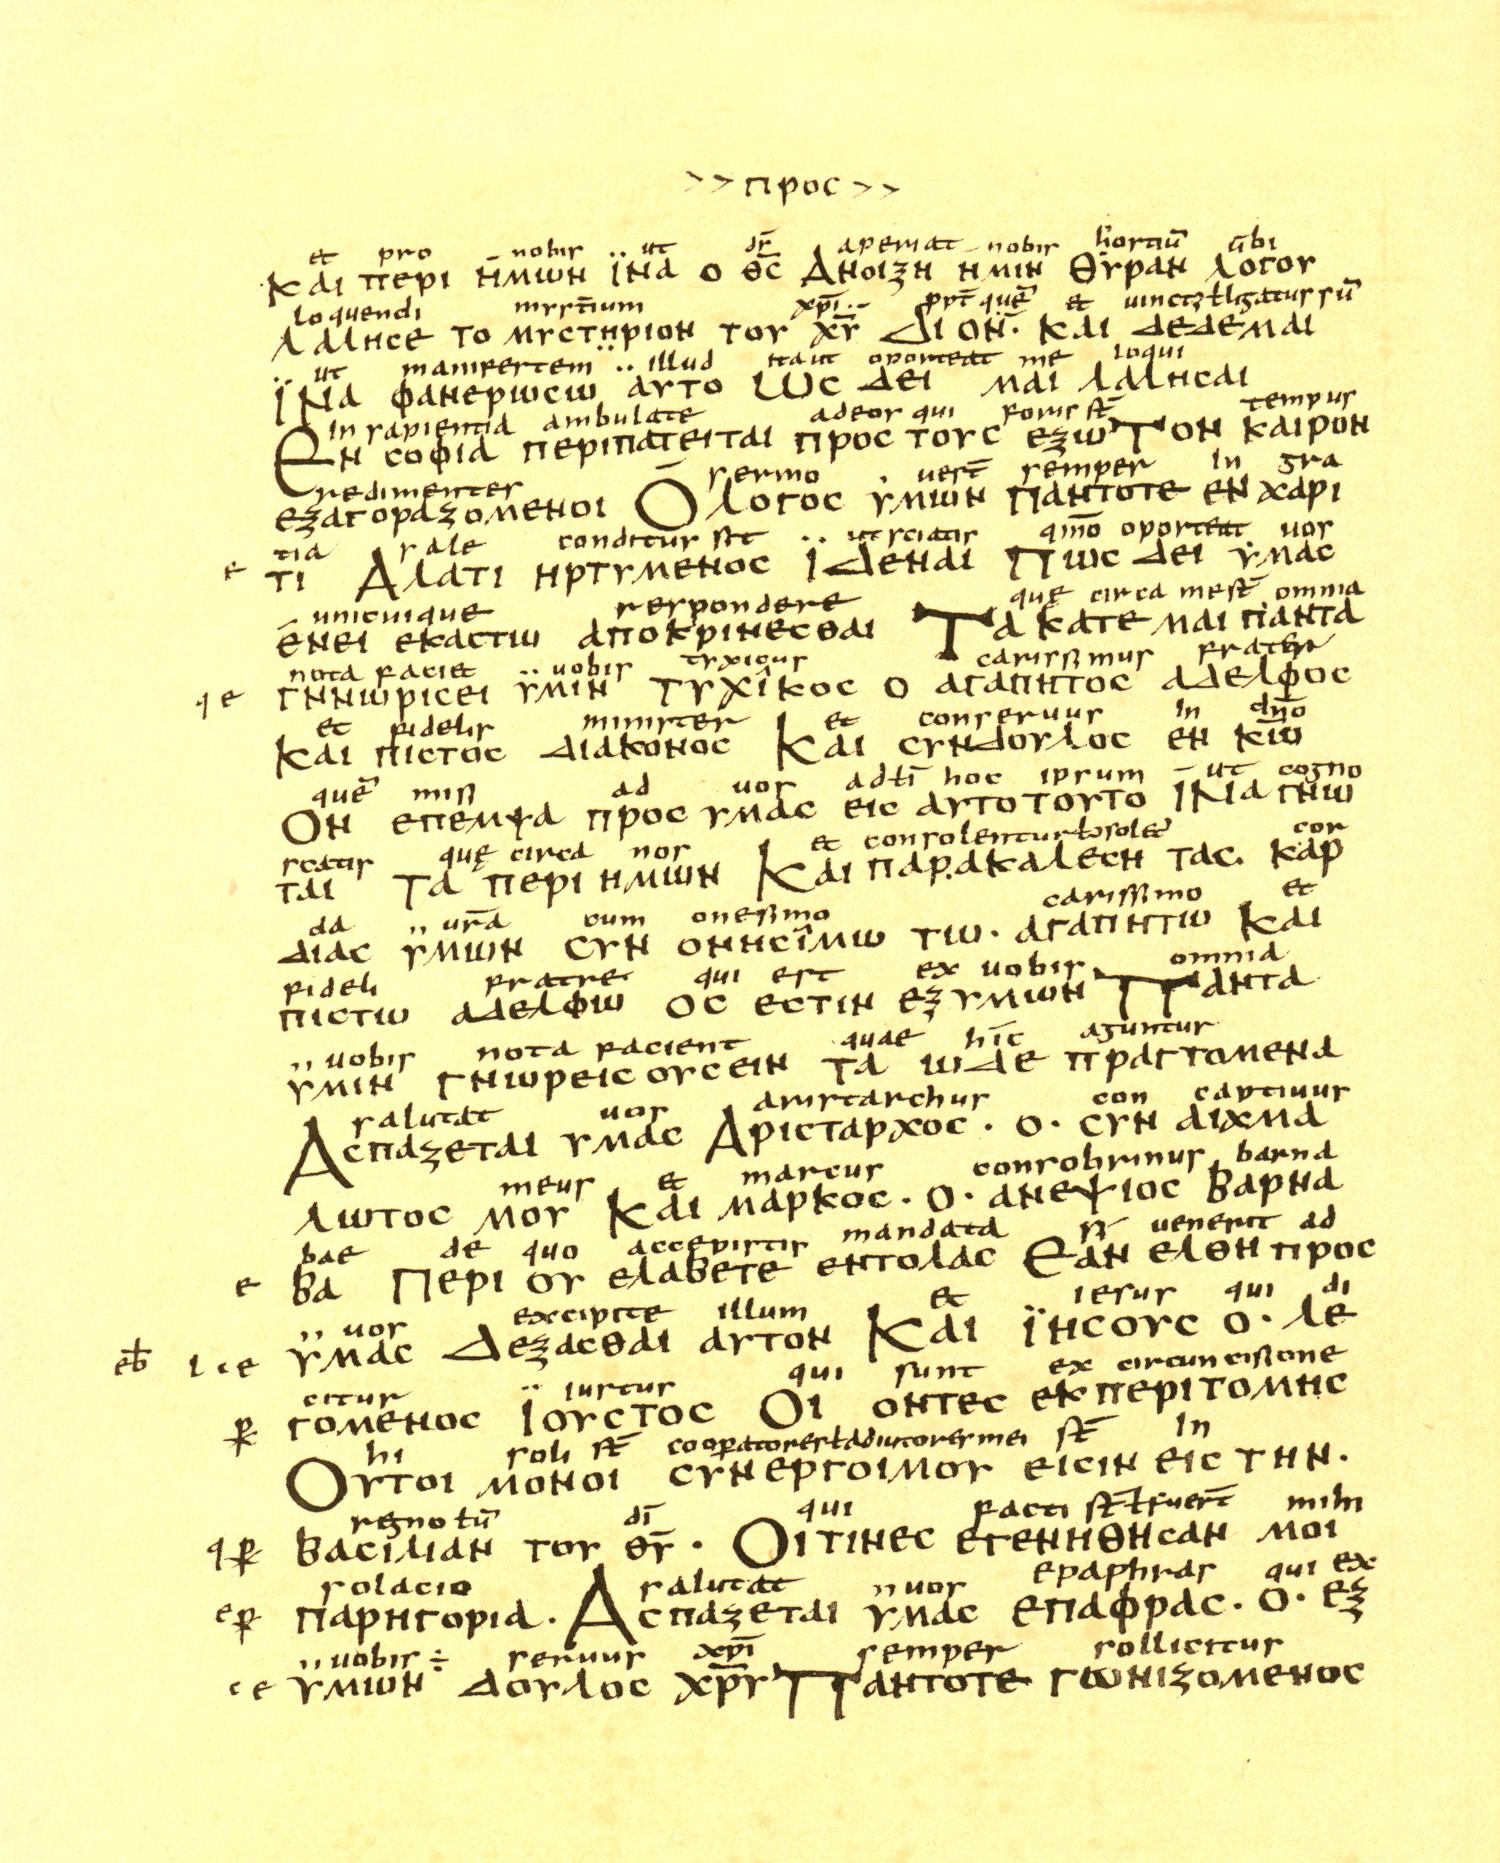 >> προς >>
et pro nobis ut ds̄ aperiat nobis hortiū ūbi
και περι ημων ϊνα ο θ̅ς̅ Ανοιξη ημιν θυραν λογου
loquendi mysterium xp̄i quē et
λαλησε το μυστηριον του χ̅υ̅ Δι ον· και δεδεμαι
ut manifestem illud oporteat me loqui
ϊνα φανερωσω αυτο Ως δει μαι λαλησαι
In sapientia ambulate adeos qui foris st̄ tempus
Εν σοφια περιπατειται προς τους εξω Τον καιρον
redimentes sermo vest̄ semper In gra
εξαγοραζομενοι Ο λογος υμων Παντοτε εν χαρι
tia sale conditus sit ut sciatis qm̄o oporteat vos
ε τι Αλατι ηρτυμενος ιδεναι Πως δει υμας
unicuique respondere quę circa me st̄ omnia
ενει εκαστω αποκρινεσθαι Τα κατε μαι παντα
nota faciet uobis tychicus carissimus frater
qε γννωρισει υμιν τυχικος ο αγαπητος αδελφος
et fidelis minister et conservus in dn̄o
και πιστος διακονος Και συνδουλος εν κ̅ω̅
quē misi ad uos adt̄i hoc ipsum ut cogno
Ον επεμψα προς υμας εις αυτο τουτο ινα γνω
scatis quę circa nos et consolentur cor
ται τα περι ημων Και παρακαλεση τας· καρ
da ur̄a cum onesimo carissimo et
διας υμων συν ονησιμω τω· αγαπητω και
fideli fratre qui est ex uobis omnia
πιστω αδελφω ος εστιν εξ υμων Παντα
uobis nota facient quae hic aguntur
υμιν γνωρεισουσειν τα ωδε πραγτομενα
salutat uos aristarchus con captiuus
Ασπαζεται υμας Αρισταρχος· ο· συν αιχμα
meus et marcus consobrinus barna
λωτος μου Και μαρκος· ο· ανεψιος βαρνα
bae de quo accepistis mandata si uenerit ad
ε βα Περι ου ελαβετε εντολας Εαν ελθη προς
uos excipite illum et iesus qui di
υμας Δεξασθαι αυτον Και ϊησους ο· λε
citur iustus qui sunt ex circuncisione
γομενος Ιουστος Οι οντες εκ περιτομης
hi soli st̄ st̄ In
Ουτοι μονοι συνεργοι μου εισιν εις την·
regno dī qui facti mihi
βασιλιαν του θ̅υ̅· Οιτινες εγενηθησαν μοι
solacio salutat uos epaphras qui ex
παρηγορια· Ασπαζεται υμας επαφρας· ο· εξ
uobis ÷ seruus xp̄i semper sollicitus
ce υμων δουλος χ̅ρ̅υ̅ Παντοτε γωνιζομενος